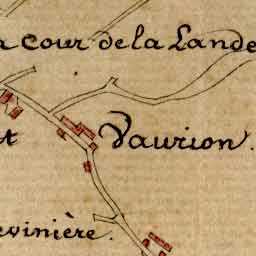 a Cour de la Lande
t
Vaurion.
evinière.